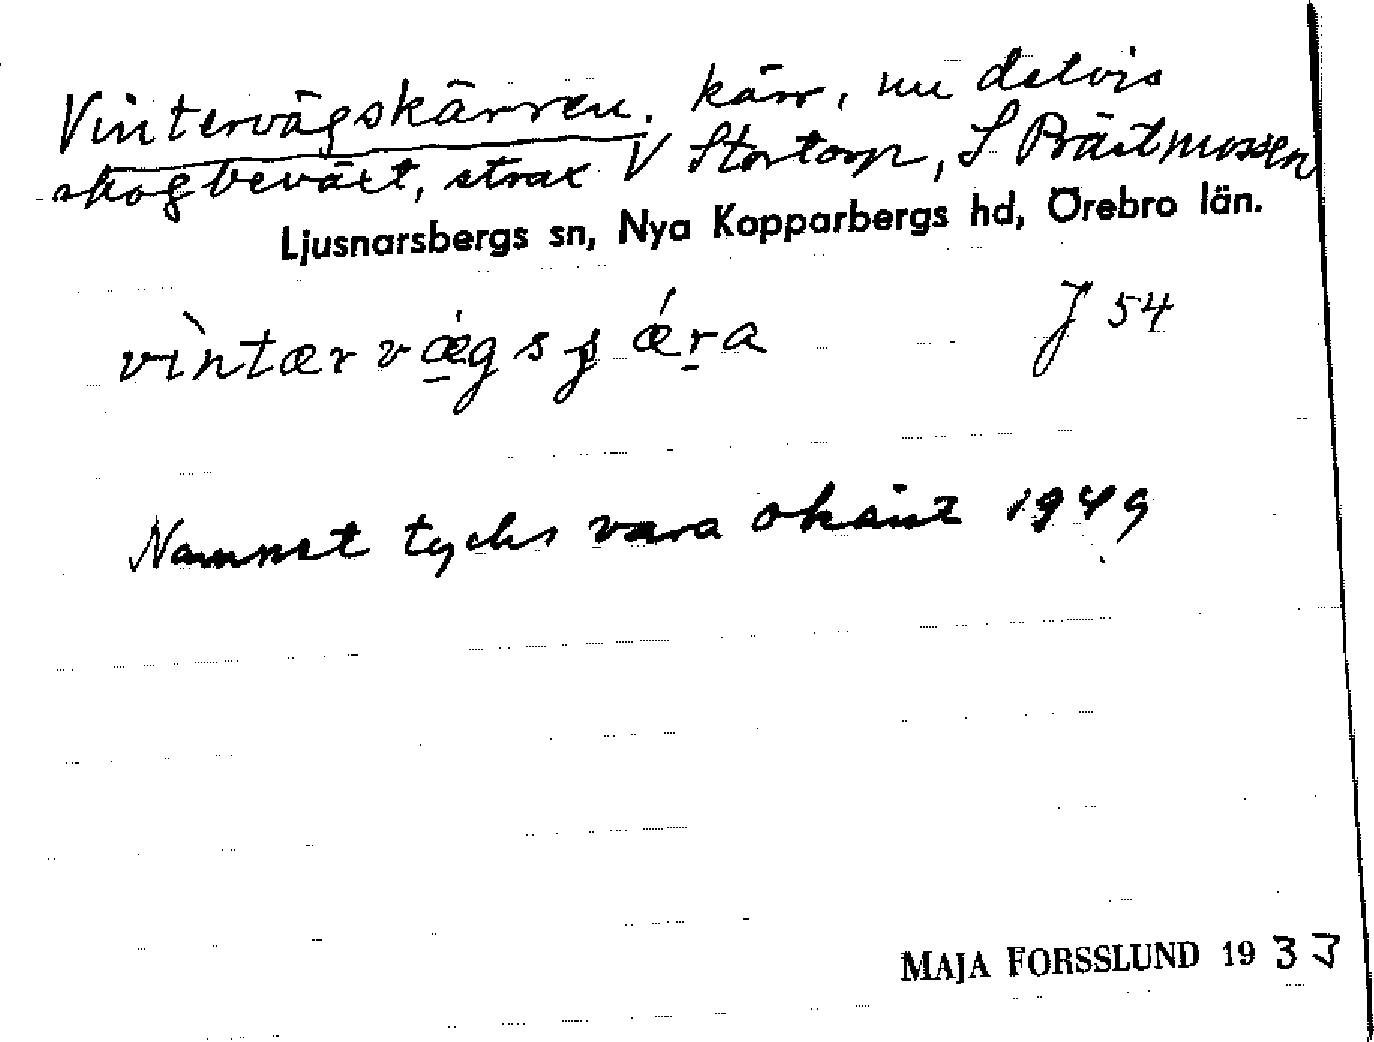 Vintervägskärren. kärr, nu delvis
skogbeväxt, strax V Stortorp, S Prästmossen
Ljusnarsbergs sn, Nya Kopparbergs hd, Örebro län.
vìntær vǽgs ʂǽra J 54
Namnet tycks vara okänt 1949
MAJA FORSSLUND 1933